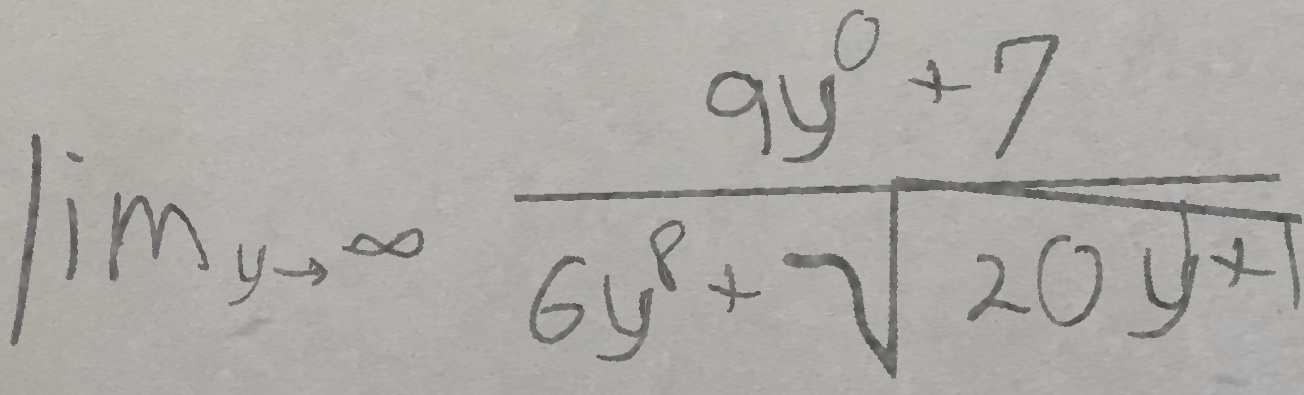 \lim_{y \to \infty} \frac{9y^0 + 7}{6y^8 + \sqrt{20y + 1}}